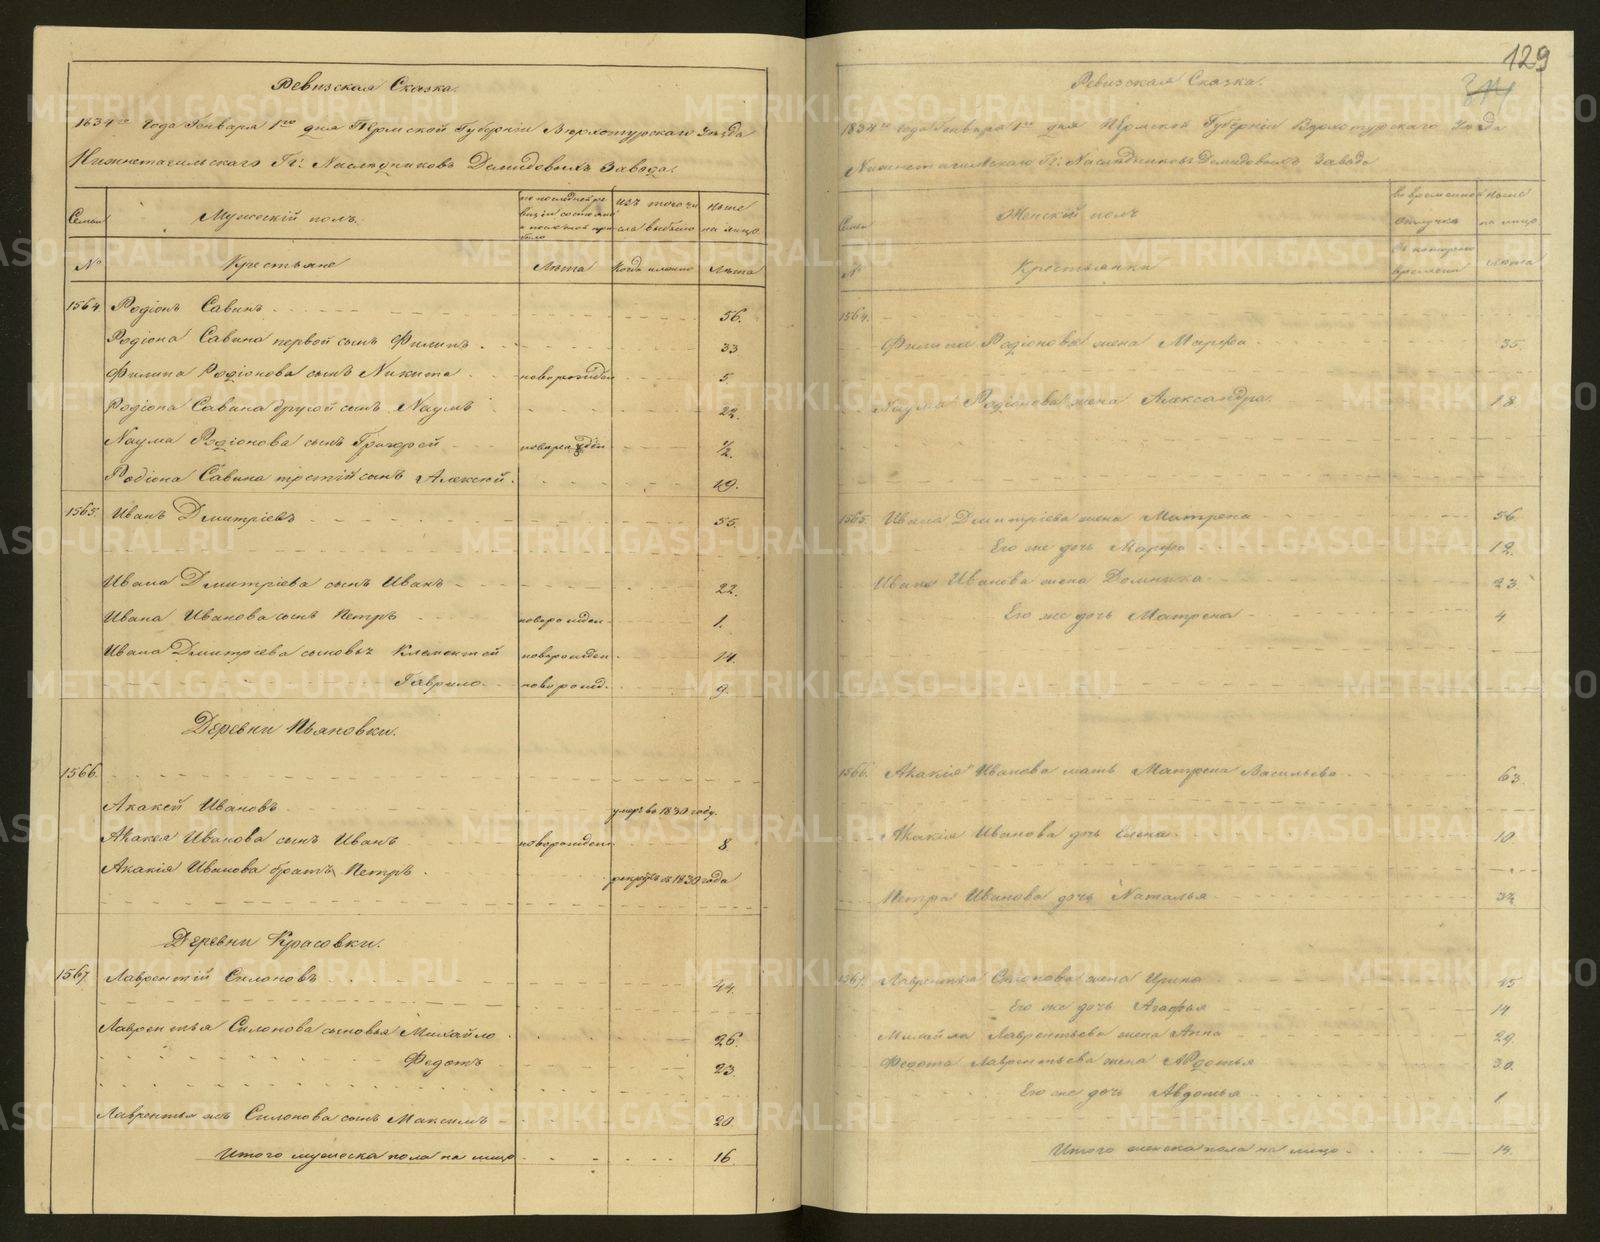 Ревизская Сказка.
1834го года Генваря 1го дня Пермской Губерніи Верхотурскаго Уезда
Нижнетагильскаго Гг: Наследниковъ Демидовыхъ Завода.
Семьи Мужескій полъ. по последней ревизіи состояло и после того прибыло изъ того числа выбыло ныне на лицо
№ Крестьяне Лета Когда именно Лета
1564. Родіонъ Савинъ 56.
Родіона Савина первой сынъ Филипъ. 33
Филипа Родіонова сынъ Никита новорожден 5.
Родіона Савина другой сынъ Наумъ 22.
Наума Родіонова сынъ новорожден 1/2.
Родіона Савина третій сынъ Алексей. 19.
1565. Иванъ Дмитріевъ 55.
Ивана Дмитріева сынъ Иванъ 22.
Ивана Иванова сынъ Петръ новорожден 1.
Ивана Дмитріева сыновья Климентей новорожден 14.
Гаврило новорожд. 9.
Деревни Пьяновки.
1566.
Акакей Ивановъ умеръ въ 1830 году.
Акакея Иванова сынъ Иванъ новорожден 8
Акакія Иванова братъ Петръ. рекрутъ въ 1830 года
Деревни Красовки.
1567. Лаврентій Силоновъ 44.
Лаврентья Силонова сыновья Михайло 26.
Федотъ 23.
Лаврентья жъ Силонова сынъ Максимъ 20.
Итого мужеска пола на лицо 16.
129
Ревизская Сказка.
1834го года Генваря 1го дня Пермской Губерніи Верхотурскаго Уезда
Нижнетагильскаго Гг: Наследниковъ Демидовыхъ Завода
Семьи Женскій полъ во временной отлучке ныне на лицо
№ Крестьянки Съ котораго времени Лета
1564.
Филипа Родіонова жена Марфа 35.
Наума Родіонова жена Александра. 18.
1565. Ивана Дмитріева жена Матрена 56.
Его же дочь Марфа 12.
Ивана Иванова жена Домника 23.
Его же дочь Матрена 4
1566. Акакія Иванова мать Матрена Васильева 63.
Акакія Иванова дочь Елена 10.
Петра Иванова дочь Наталья 32.
1567. Лаврентья Силонова жена Ирина 45
Его же дочь Агафья 14
Михайла Лаврентьева жена Анна 29.
Федота Лаврентьева жена Авдотья 30.
Его же дочь Авдотья 1
Итого женска пола на лицо 14.
METRIKI.GASO-URAL.RU